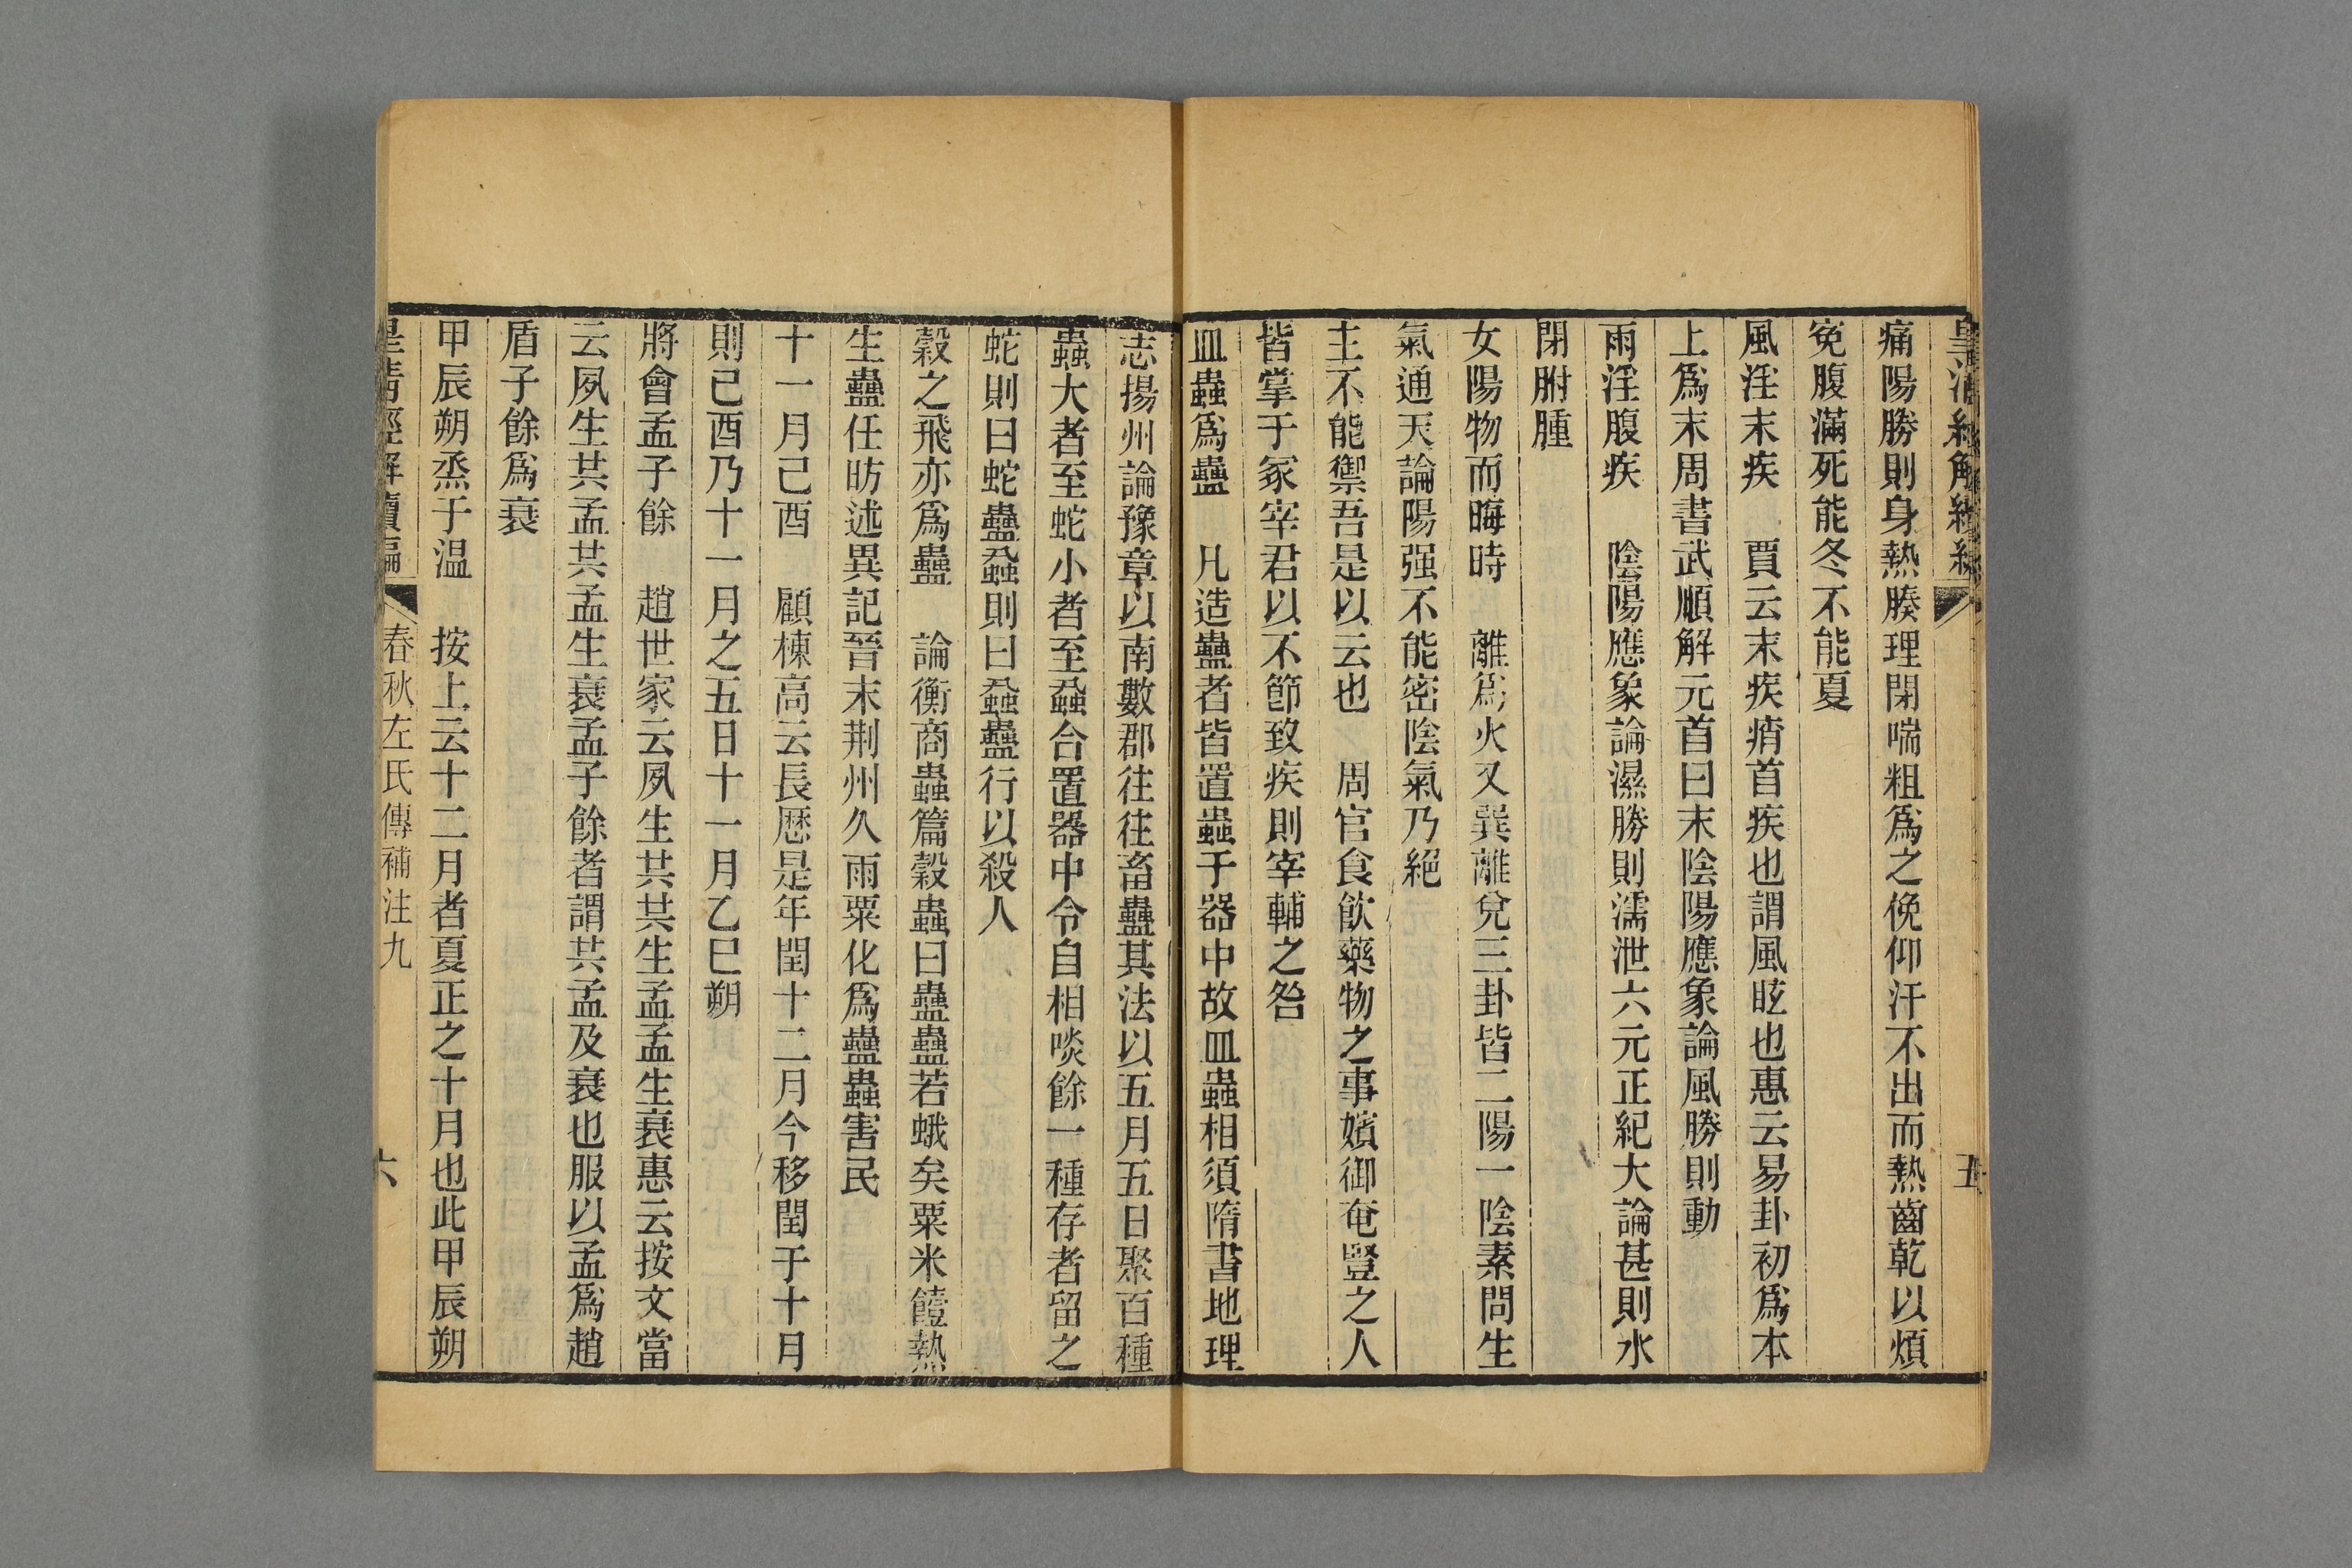 痛陽勝則身熱腠理閉喘粗爲之俛仰汗不出而熱齒乾以煩
寃腹滿死能冬不能夏
風淫末疾　賈云末疾痟首疾也謂風眩也惠云易卦初爲本
上爲末周書武順解元首曰末陰陽應象論風勝則動
雨淫腹疾　陰陽應象論濕勝則濡泄六元正紀大論甚則水
閉胕腫
女陽物而晦時　離爲火又巽離兌三卦皆二陽一陰素問生
氣通天論陽强不能密陰氣乃絕
主不能禦吾是以云也　周官食飲藥物之事嬪御奄豎之人
皆掌于冢宰君以不節致疾則宰輔之咎
皿蟲爲蠱　凡造蠱者皆置蟲于器中故皿蟲相須隋書地理
志揚州論豫章以南數郡往往畜蠱其法以五月五日聚百種
蟲大者至蛇小者至蝨合置器中令自相啖餘一種存者留之
蛇則曰蛇蠱蝨則曰蝨蠱行以殺人
穀之飛亦爲蠱　論衡商蟲篇穀蟲曰蠱蠱若蛾矣粟米饐熱
生蠱任昉述異記晉末荆州久雨粟化爲蠱蟲害民
十一月己酉　顧棟高云長厯是年閏十二月今移閏于十月
則己酉乃十一月之五日十一月乙巳朔
將會孟子餘　趙世家云夙生共共生孟孟生衰惠云按文當
云夙生共孟共孟生衰孟子餘者謂共孟及衰也服以孟爲趙
盾子餘爲衰
甲辰朔烝于温　按上云十二月者夏正之十月也此甲辰朔
皇清經解續編
春秋左氏傳補注九
六